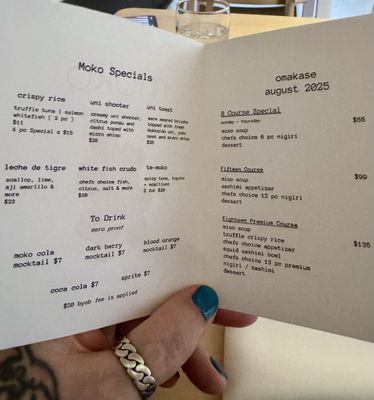 Moko Specials
crispy rice
truffle tuna | salmon
whitefish ( 2 pc )
$11
4 pc Special x $15
uni shooter
creamy uni shooter,
citrus ponzu and
dashi toped with
micro shiso
uni toast
ware seared brioche
topped with fresh
Hokkaido uni, yuzu
zest and micro shiso
leche de tigre
scallop, lime,
aji amarillo &
more
$23
white fish crudo
chefs choice fish,
citrus, salt & more
te-moko
spicy tuna, topiko
+ scallion
2 for
To Drink
zero proof
moko cola
mocktail $7
dark berry
mocktail $7
blood orange
mocktail $7
coca cola $7
sprite $7
$20 byob fee is applied
omakase
august 2025
8 Course Special
sunday - thursday
$55
miso soup
chefs choice 6 pc nigiri
dessert
Fifteen Course
$99
miso soup
sashimi appetizer
chefs choice 12 pc nigiri
dessert
Eighteen Premium Course
miso soup
truffle crispy rice
$135
chefs choice appetizer
squid sashimi bowl
chefs choice 13 pc premium
nigiri / sashimi
dessert